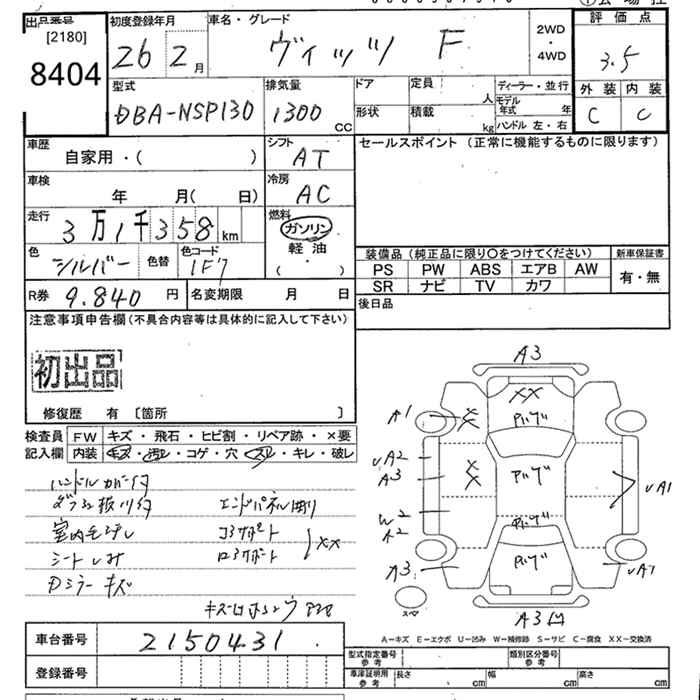 出品番号
[2180]
8404
初度登録年月
26 2月
車名・グレード
ヴィッツ F
2WD
・
4WD
評価点
3.5
外装 内装
C C
型式
DBA-NSP130
排気量
1300 CC
ドア
形状
定員 人
積載 kg
ディーラー・並行
モデル年式 年
ハンドル 左・右
車歴
自家用・( )
シフト
AT
セールスポイント (正常に機能するものに限ります)
車検
年 月( 日)
冷房
AC
走行
3万1千358km
燃料
ガソリン
・
軽油
( )
色
シルバー
色替
色コード
1F7
装備品 (純正品に限り○をつけてください)
PS PW ABS エアB AW
SR ナビ TV カワ
新車保証書
有・無
R券 9.840 円
名変期限 月 日
後日品
注意事項申告欄 (不具合内容等は具体的に記入して下さい)
初出品
修復歴 有 〔箇所 〕
検査員記入欄
FW キズ・飛石・ヒビ割・リペア跡・×要
内装 キズ・汚れ・コゲ・穴・スレ・キレ・破レ
ハンドルカバー付
室内モヨゴレ
シートしみ
Dミラーキズ
エンドパネル凹
コアサポート
XX
A3
XX
A1
パンプ
UA2
A3
W2
A2
A3
UA1
UA1
A3凹
スペ
A−キズ E−エクボ U−凹み W−補修跡 S−サビ C−腐食 XX−交換済
車台番号
2150431
登録番号
型式指定番号
参考
類別区分番号
参考
車庫証明用
参考
長さ cm
幅 cm
高さ cm